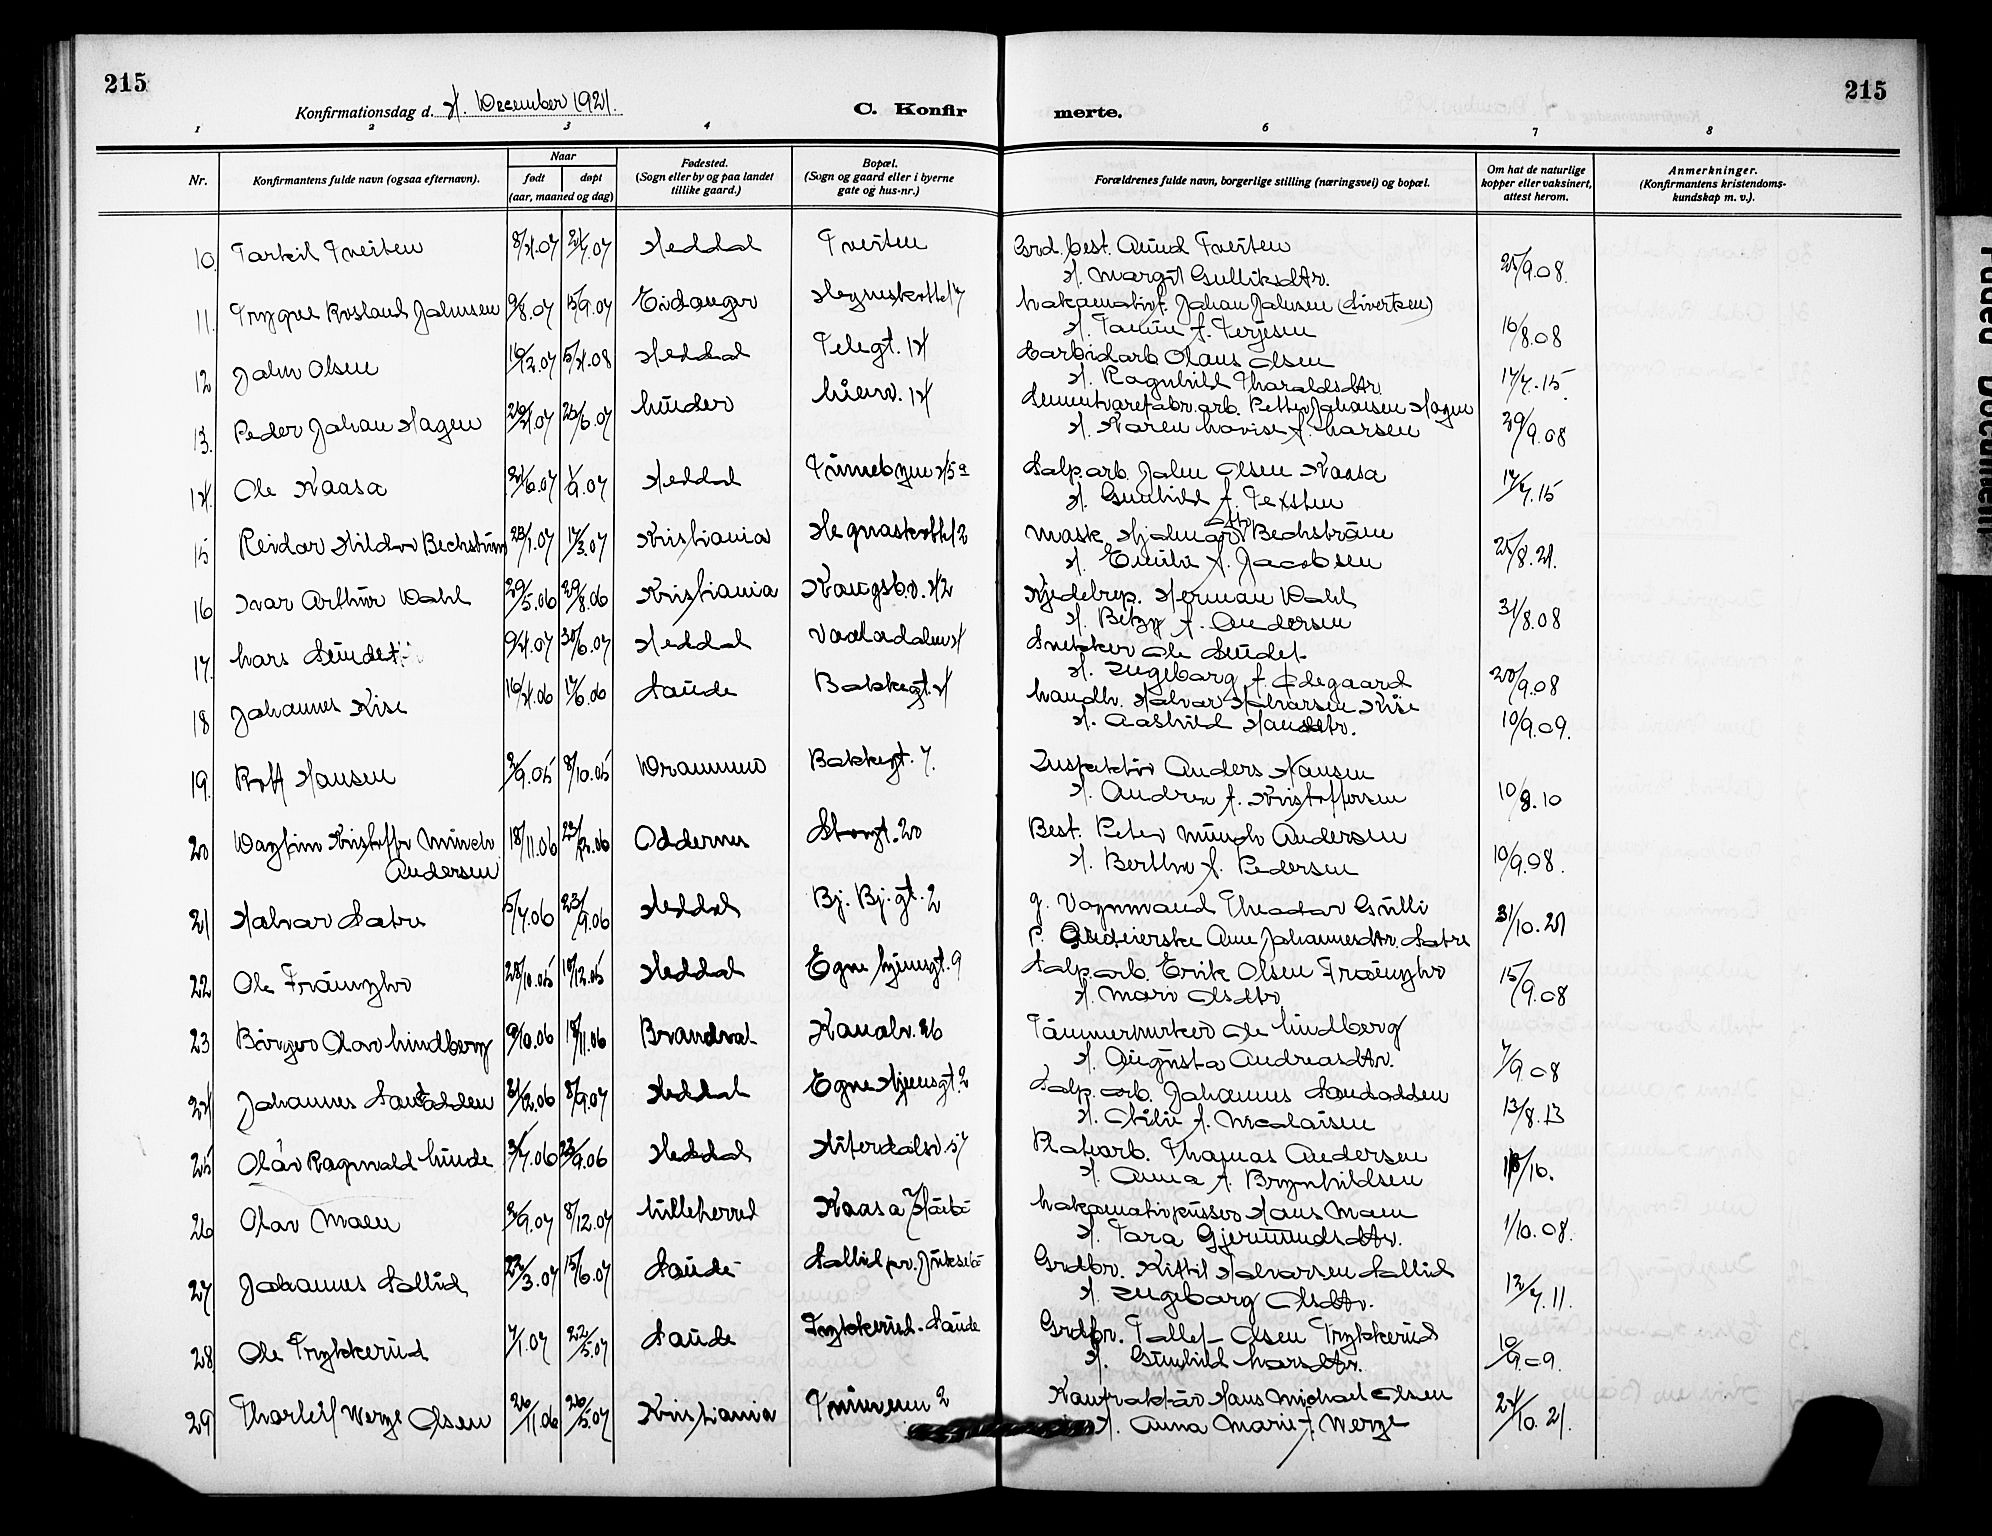 215
215
Konfirmationsdag d. 4. December 1921.
C. Konfir
merte.
1 2 3 4 5 6 7 8
Nr.
Konfirmantens fulde navn (ogsaa efternavn).
Naar
født
døpt
(aar, maaned og dag)
Fødested.
(Sogn eller by og paa landet
tillike gaard.)
Bopæl.
(Sogn og gaard eller i byerne
gate og hus-nr.)
Forældrenes fulde navn, borgerlige stilling (næringsvei) og bopæl.
Om hat de naturlige
kopper eller vaksinert,
attest herom.
Anmerkninger.
(Konfirmantens kristendoms-
kundskap m. v.).
10. Tarkil Tveiten 8/4.07 21/7.07 Heddal Tveiten Grd.best. Aund Tveiten 25/9.08.
H. Margit Gulliksdtr.
11. Trygve Rosland Johnsen 9/8.07 15/9.07 Eidanger Johan Johnsen (Sivertsen) 16/8.08
f. Terjesen
12 John Olsen 16/12.07 5/4.08 Heddal Telegt. 14 Carbidarb. Olaus Olsen 17/7.15
H. Ragnhild Tharaldsdtr.
13. Peder Johan Hagen 26/4.07 23/6.07 Lunder Lienv. 14 Sementvarefabr.arb. Petter Johansen Hagen 29/9.08
H. Karen Lovise f. Larsen
14 Ole Kaasa 21/6.07 1/9.07 Heddal Tinnebyen 45a Salp.arb. John Olsen Kaasa 17/7.15
H. Gunhild f. Teksten
15 Reidar Hildor Bechstrøm 23/1.07 17/3.07 Kristiania Hegnaskottet 2 Mask. Hjalmar Otto Bechstrøm 25/8.21.
H. Emilie f. Jacobsen
16 Ivar Arthur Dahl 29/5.06 29/8.06 Kristiania Kongsb.v. 42 Kjedelrep. Herman Dahl 31/8.08
H. Betzy f. Andersen
17. Lars Sundet 9/4.07 30/6.07 Heddal Vaaladalen 4 Snekker Ole Sundet
H. Ingeborg f. Ødegaard 20/9.08
18 Johannes Kise 16/4.06 17/6.06 Saude Bakkegt. 4 Landh. Halvor Halvorsen Kise
H. Aashild Hansdtr. 10/9.09.
19. Rolf Hansen 2/9.05 8/10.05 Drammen Bakkegt. 7. Inspektør Anders Hansen
H. Andrea f. Kristoffersen 10/8.10
20 Dagfinn Kristoffer Münch 18/11.06 23/12.06 Oddernes Storgt. 20 Best. Peter Münch Andersen
Andersen H. Berthe f. Pedersen 10/9.08.
21 Halvor Satre 5/7.06 23/9.06 Heddal Bj. Bj. gt. 2 g. Vognmand Theodor Gulli 31/10.21
p. Anne Johannesdtr. Satre
22 Ole Fraunylvo 28/10.05 10/12.05 Heddal Egne hjemsgt. 9 Salp.arb. Erik Olsen 15/9.08
H. Mari Olsdtr.
23 Birger Olav Lindberg 9/10.06 18/11.06 Brandval Kanalv. 26 Tømmermerker Ole Lindberg
H. Augusta Andreasdtr. 7/9 08
24 Johannes Sandodden 21/12.06 8/9.07 Heddal Egne Hjemsgt. 2 Salp.arb. Johannes Sandodden 13/8.13
H. f. Nicolaisen
25 Olav Ragnvald Linde 3/7.06 23/9.06 Heddal Hiterdalsv. 57 Platearb. Thomas Andersen
H. Anna f. Brynhildsen
26 Olav Moen 2/9.07 8/12.07 Lilleherred Kaasa Lokomotivpusser Hans Moen 1/10.08.
H. Tara Gjermundsdtr.
27 Johannes Sollid 22/3.07 15/6.07 Saude Sollid pr. Juksebø Grdbr. Kittil Halvorsen Sollid 12/7.11.
H. Ingeborg Olsdtr.
28 Ole Trykkerud 7/1.07 22/5.07 Saude Trykkerud. Saude Grdbr. Tallef Olsen Trykkerud 10/9.09.
H. Gunhild Larsdtr.
29 Thorleif Werge Olsen 26/11.06 26/5.07 Kristiania 2 Kontraktør Hans Michael Olsen 24/10.21.
H. Anna Marie f. Werge